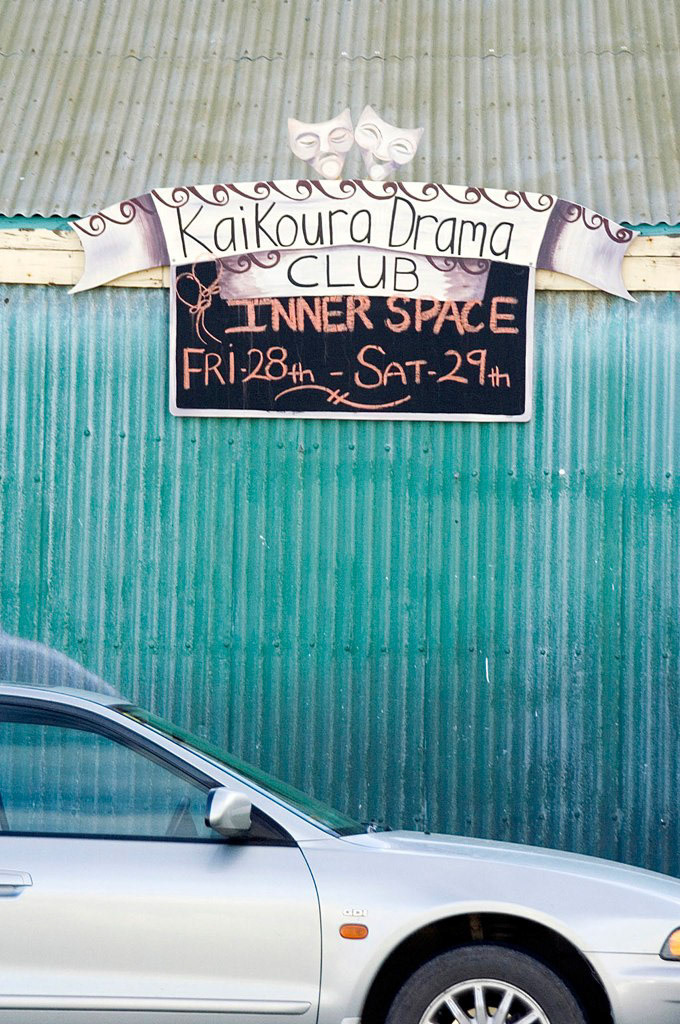 KaiKoura Drama
CLUB
INNER SPACE
FRI-28th - SAT-29th
GDI